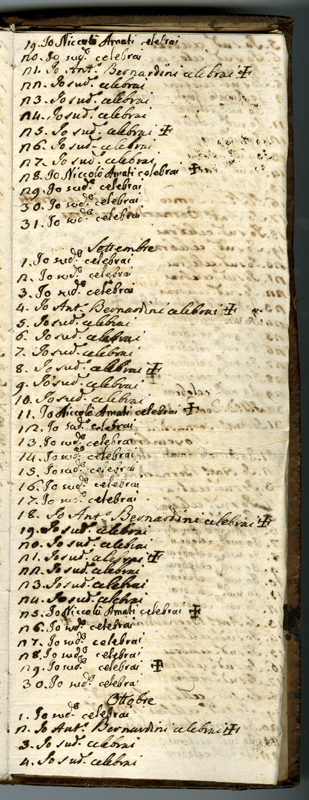 19. Io Niccolò Amati celebrai
20. Io sud.º celebrai
21. Io Ant.º Bernardini celebrai ✠
22. Io sud.º celebrai
23. Io sud.º celebrai
24. Io sud.º celebrai
25. Io sud.º celebrai ✠
26. Io sud.º celebrai
27. Io sud.º celebrai
28. Io Niccolò Amati celebrai ✠
29. Io sud.º celebrai
30. Io sud.º celebrai
31. Io sud.º celebrai
Settembre
1. Io sud.º celebrai
2. Io sud.º celebrai
3. Io sud.º celebrai
4. Io Ant. Bernardini celebrai ✠
5. Io sud.º celebrai
6. Io sud.º celebrai
7. Io sud.º celebrai
8. Io sud.º celebrai ✠
9. Io sud.º celebrai
10. Io sud.º celebrai
11. Io Niccolò Amati celebrai ✠
12. Io sud.º celebrai
13. Io sud.º celebrai
14. Io sud.º celebrai
15. Io sud.º celebrai
16. Io sud.º celebrai
17. Io sud.º celebrai
18. Io Ant.º Bernardini celebrai ✠
19. Io sud.º celebrai
20. Io sud.º celebrai
21. Io sud.º celebrai ✠
22. Io sud.º celebrai
23. Io sud.º celebrai
24. Io sud.º celebrai
25. Io Niccolò Amati celebrai ✠
26. Io sud.º celebrai
27. Io sud.º celebrai
28. Io sud.º celebrai
29. Io sud.º celebrai ✠
30. Io sud.º celebrai
Ottobre
1. Io sud.º celebrai
2. Io Ant.º Bernardini celebrai ✠
3. Io sud.º celebrai
4. Io sud.º celebrai